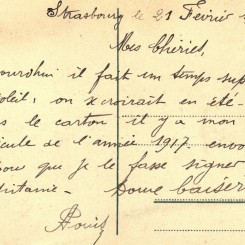 Strasbourg le 21 Fevrier
Mes Chéries,
ourdhui il fait un temps sup
oleil, on xroirait en été.
s le carton il y a mon
icule de l'année 1917. envo
pou que je le fasse signer
Douce baiser
Louis